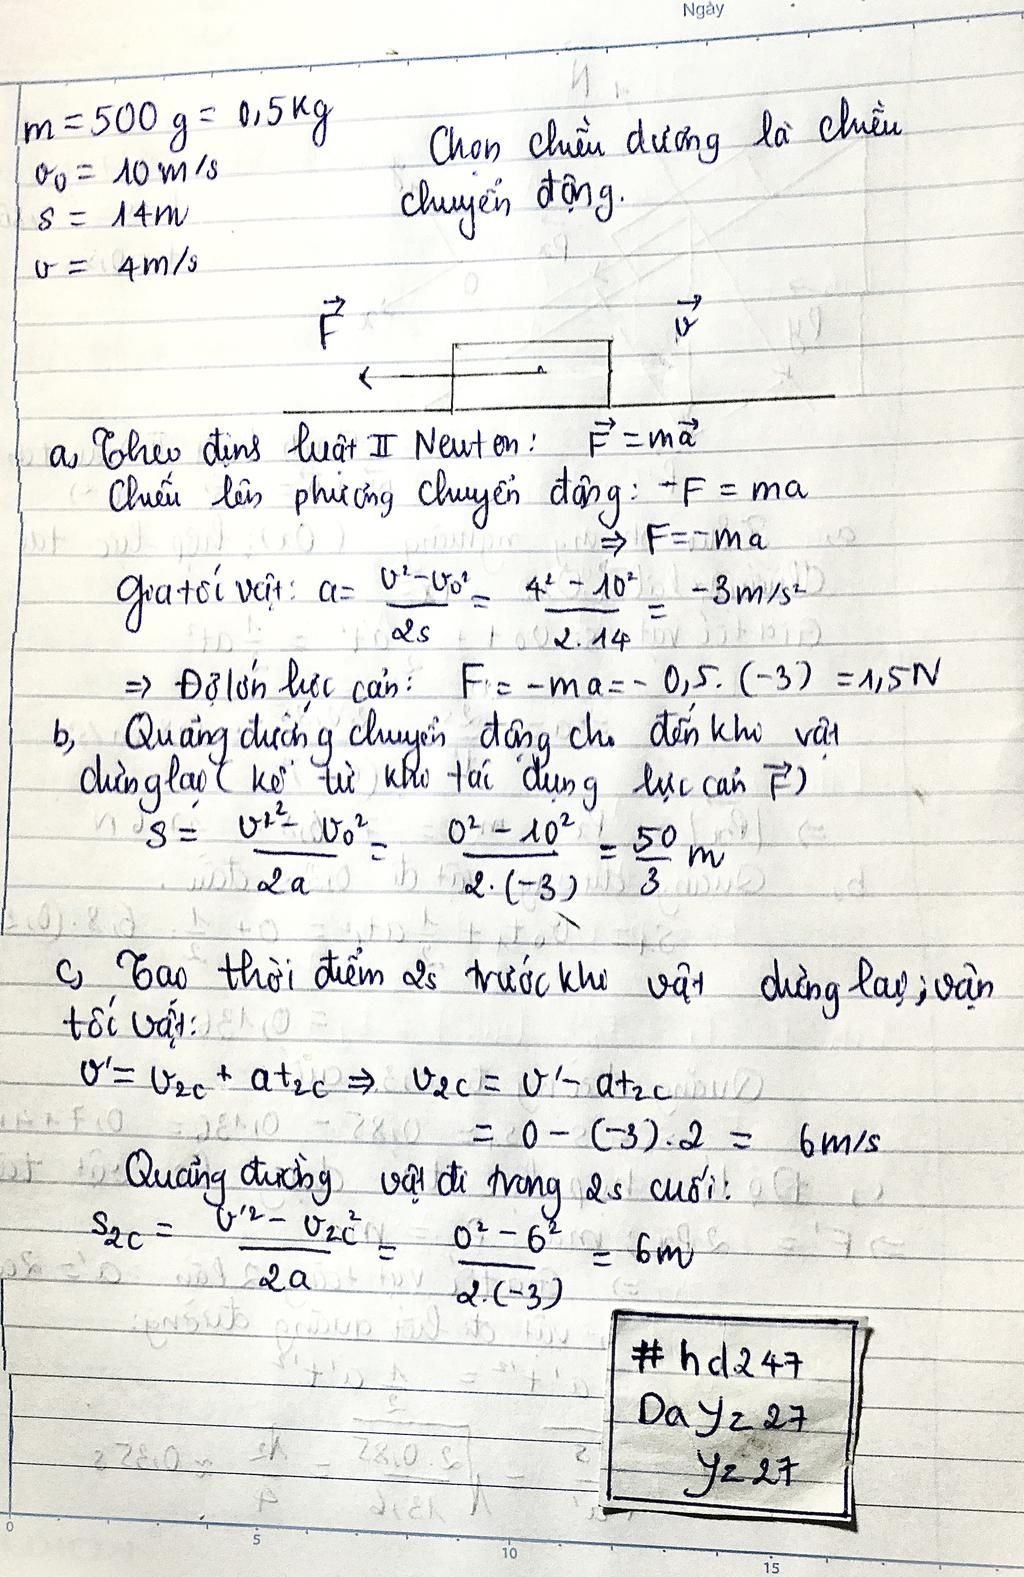 Ngày
m = 500 g = 0,5 kg
v₀ = 10 m/s
s = 14m
v = 4m/s
Chọn chiều dương là chiều
chuyển động.
F⃗ v⃗
a, Theo định luật II Newton: F⃗ = ma⃗
Chiếu lên phương chuyển động: -F = ma
⇒ F = -ma
Gia tốc vật: a = (v² - v₀²)/(2s) = (4² - 10²)/(2.14) = -3m/s²
⇒ Độ lớn lực cản: F = -ma = -0,5.(-3) = 1,5N
b, Quảng đường chuyển động cho đến khi vật
dừng lại (kể từ khi tác dụng lực cản F⃗)
s = (v'² - v₀²)/(2a) = (0² - 10²)/(2.(-3)) = 50/3 m
c, Tao thời điểm 2s trước khi vật dừng lại, vận
tốc vật:
v' = v₂c + at₂c ⇒ v₂c = v' - at₂c
= 0 - (-3).2 = 6m/s
Quảng đường vật đi trong 2s cuối:
s₂c = (v'² - v₂c²)/(2a) = (0² - 6²)/(2.(-3)) = 6m
# hd247
Day z 27
yz 27
0 5 10 15